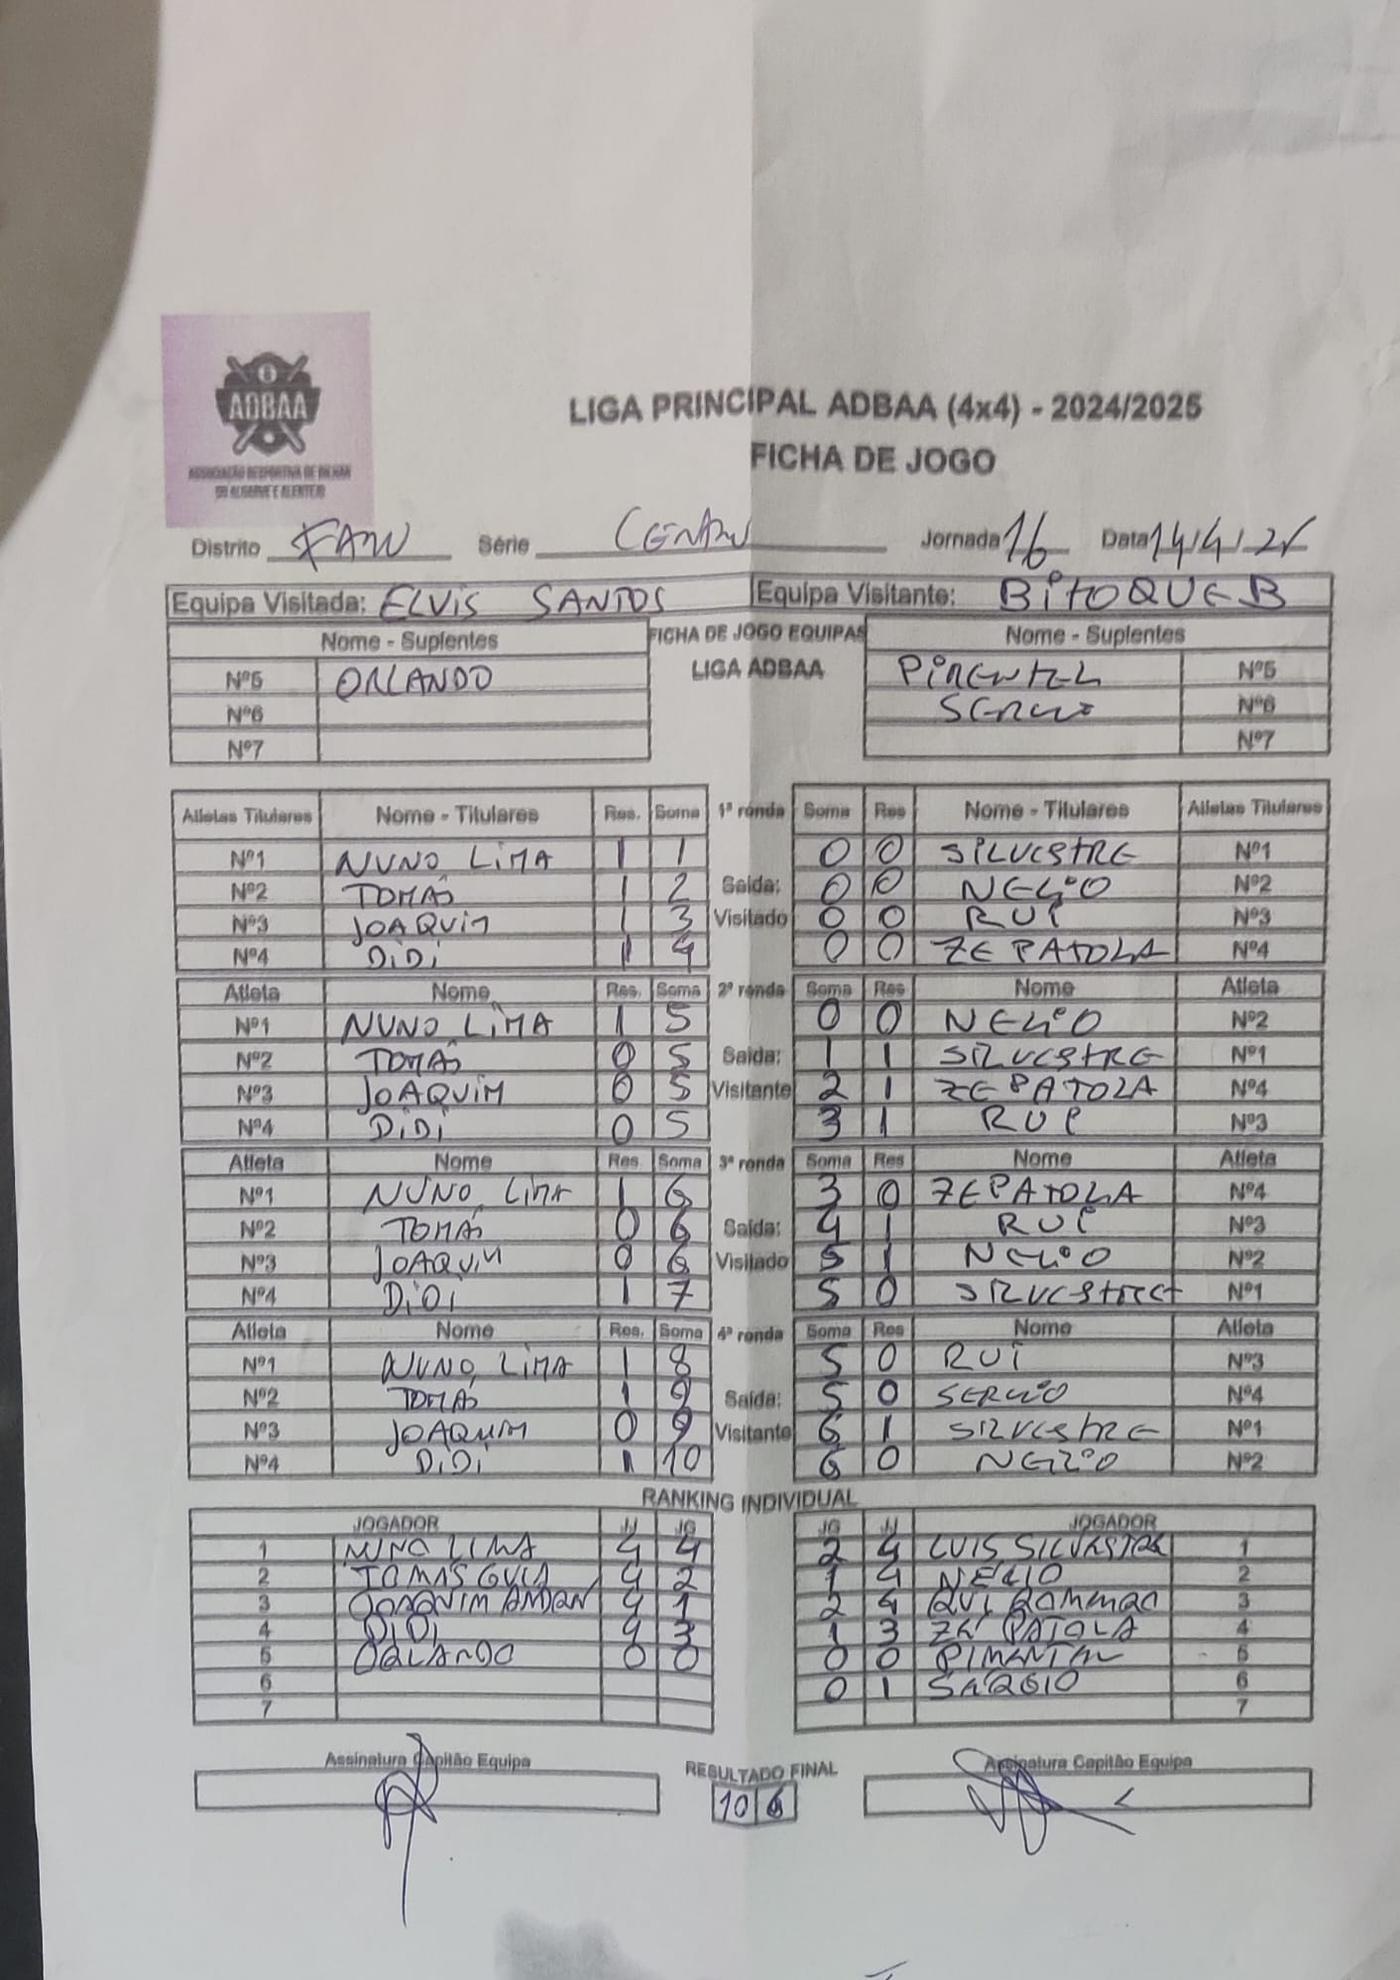 ADBAA
ASSOCIAÇÃO DESPORTIVA DE BILHAR
DO ALGARVE E ALENTEJO
LIGA PRINCIPAL ADBAA (4x4) - 2024/2025
FICHA DE JOGO
Distrito Série Jornada 16 Data 14/4/25
Equipa Visitada: ELVIS SANTOS Equipa Visitante: BITOQUE B
Nome - Suplentes FICHA DE JOGO EQUIPAS Nome - Suplentes
Nº5 ORLANDO LIGA ADBAA PIMENTEL Nº5
Nº6 SERGIO Nº6
Nº7 Nº7
Atletas Titulares Nome - Titulares Res. Soma 1ª ronda Soma Res Nome - Titulares Atletas Titulares
Nº1 NUNO LIMA 1 1 0 0 SILVESTRE Nº1
Nº2 TOMÁS 1 2 Saida: 0 0 NELIO Nº2
Nº3 JOAQUIM 1 3 Visitado 0 0 RUI Nº3
Nº4 DIDI 1 4 0 0 ZE PATOLA Nº4
Atleta Nome Res. Soma 2ª ronda Soma Res Nome Atleta
Nº1 NUNO LIMA 1 5 0 0 NELIO Nº2
Nº2 TOMÁS 0 5 Saida: 1 1 SILVESTRE Nº1
Nº3 JOAQUIM 0 5 Visitante 2 1 ZE PATOLA Nº4
Nº4 DIDI 0 5 3 1 RUI Nº3
Atleta Nome Res Soma 3ª ronda Soma Res Nome Atleta
Nº1 NUNO LIMA 1 6 3 0 ZE PATOLA Nº4
Nº2 TOMÁS 0 6 Saida: 4 1 RUI Nº3
Nº3 JOAQUIM 0 6 Visitado 5 1 NELIO Nº2
Nº4 DIDI 1 7 5 0 SILVESTRE Nº1
Atleta Nome Res. Soma 4ª ronda Soma Res Nome Atleta
Nº1 NUNO LIMA 1 8 5 0 RUI Nº3
Nº2 TOMÁS 1 9 Saida: 5 0 SERGIO Nº4
Nº3 JOAQUIM 0 9 Visitante 6 1 SILVESTRE Nº1
Nº4 DIDI 1 10 6 0 NELIO Nº2
RANKING INDIVIDUAL
JOGADOR JJ JG JG JJ JOGADOR
1 NUNO LIMA 4 4 2 4 LUIS SILVESTRE 1
2 TOMAS 4 2 1 4 NELIO 2
3 JOAQUIM 4 1 2 4 RUI 3
4 DIDI 4 3 1 3 ZE PATOLA 4
5 ORLANDO 0 0 0 0 PIMENTEL 5
6 0 1 SERGIO 6
7 7
Assinatura Capitão Equipa RESULTADO FINAL Assinatura Capitão Equipa
10 6